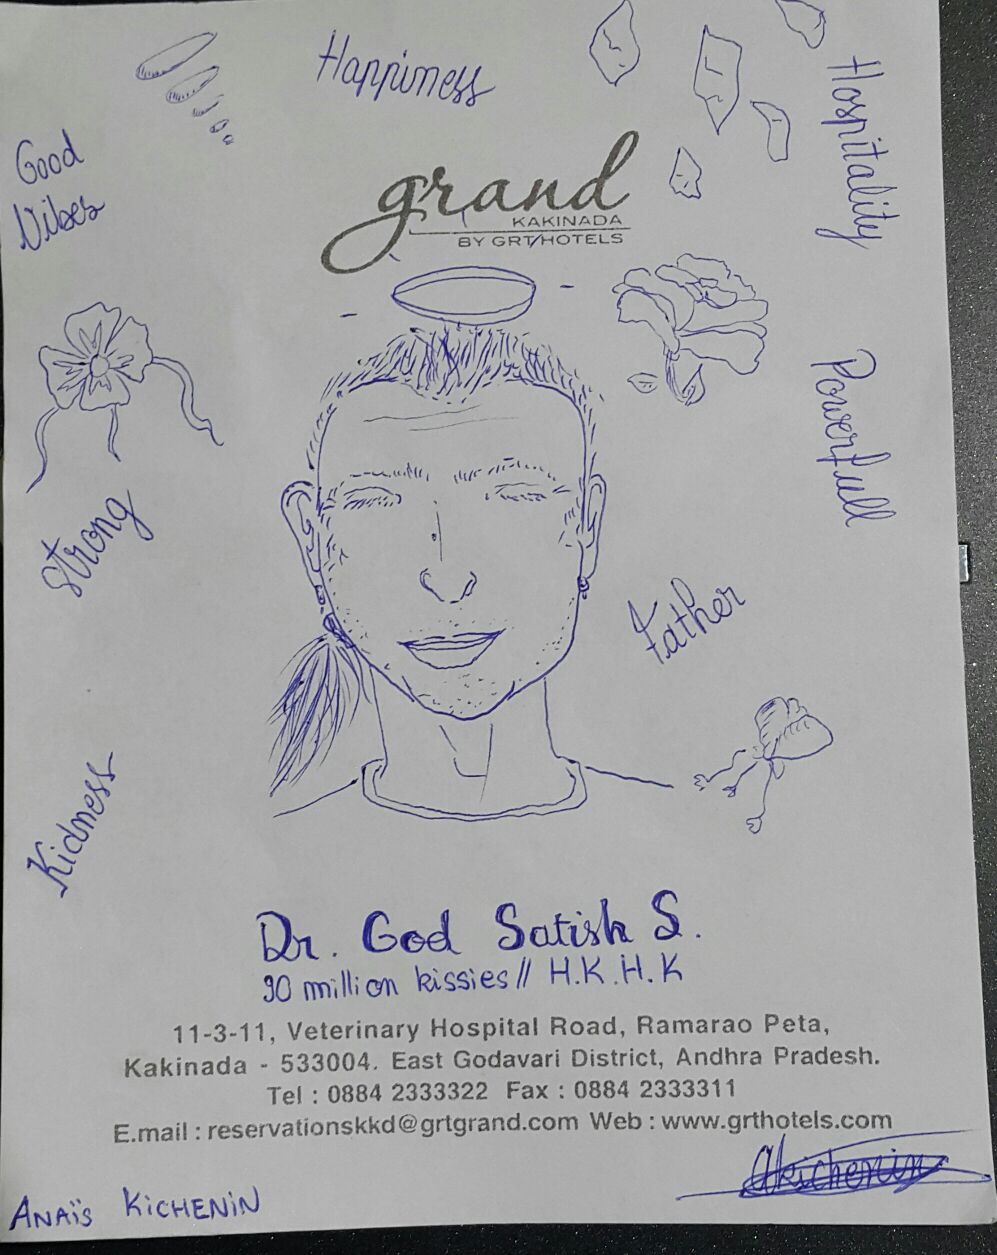 Happinness
Hospitality
Good
Vibes
grand
KAKINADA
BY GRT HOTELS
Powerfull
Strong
Father
Kidness
Dr. God Satish S.
90 million kissies // H.K.H.K
11-3-11, Veterinary Hospital Road, Ramarao Peta,
Kakinada - 533004. East Godavari District, Andhra Pradesh.
Tel : 0884 2333322 Fax : 0884 2333311
E.mail : reservationskkd@grtgrand.com Web : www.grthotels.com
Akichenin
ANAÏS KiCHENiN